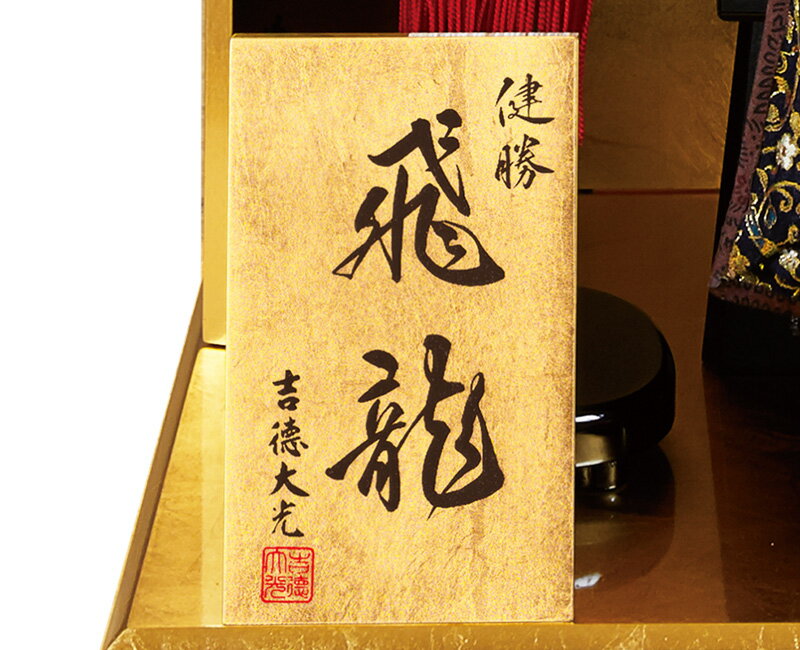 健勝
飛龍
吉德大光
吉德
大光